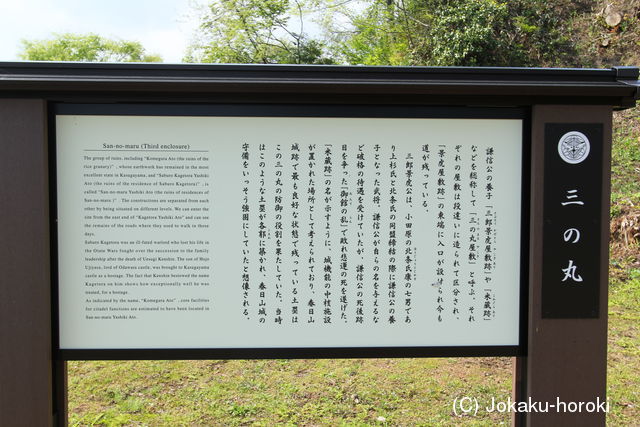 San-no-maru (Third enclosure)
The group of ruins, including "Komegura Ato (the ruins of the
rice granary)" , whose earthwork has remained in the most
excellent state in Kasugayama, and "Saburo Kagetora Yashiki
Ato (the ruins of the residence of Saburo Kagetora)" , is
called "San-no-maru Yashiki Ato (the ruins of residences of
San-no-maru )" . The constructions are separated from each
other by being situated on different levels. We can enter the
site from the east end of "Kagetora Yashiki Ato" and can see
the remains of the roads where they used to walk in those
days.
Saburo Kagetora was an ill-fated warlord who lost his life in
the Otate Wars fought over the succession to the family
leadership after the death of Uesugi Kenshin. The son of Hojo
Ujiyasu, lord of Odawara castle, was brought to Kasugayama
castle as a hostage. The fact that Kenshin bestowed the name
Kagetora on him shows how exceptionally well he was
treated, for a hostage.
As indicated by the name, "Komegura Ato" , core facilities
for citadel functions are estimated to have been located in
San-no-maru Yashiki Ato.
謙信公の養子「三郎景虎屋敷跡」や「米蔵跡」
などを総称して「三の丸屋敷」と呼ぶ、それ
ぞれの屋敷は段違いに造られて区分され、
「景虎屋敷跡」の東端に入口が設けられ今も
道が残っている。
三郎景虎公は、小田原の北条氏康の七男であ
り上杉氏と北条氏の同盟締結の際に謙信公の養
子となった武将、謙信公が自らの名を与えるな
ど破格の待遇を受けていたが、謙信公の死後跡
目を争った「御館の乱」で敗れ悲運の死を遂げた。
「米蔵跡」の名が示すように、城機能の中核施設
が置かれた場所として考えられており、春日山
城跡で最も良好な状態で残っている土塁は
この三の丸の防御の役割を果たしていた。当時
はこのような土塁が各郭に築かれ、春日山城の
守備をいっそう強固にしていたと想像される。
三の丸
(C) Jokaku-horoki